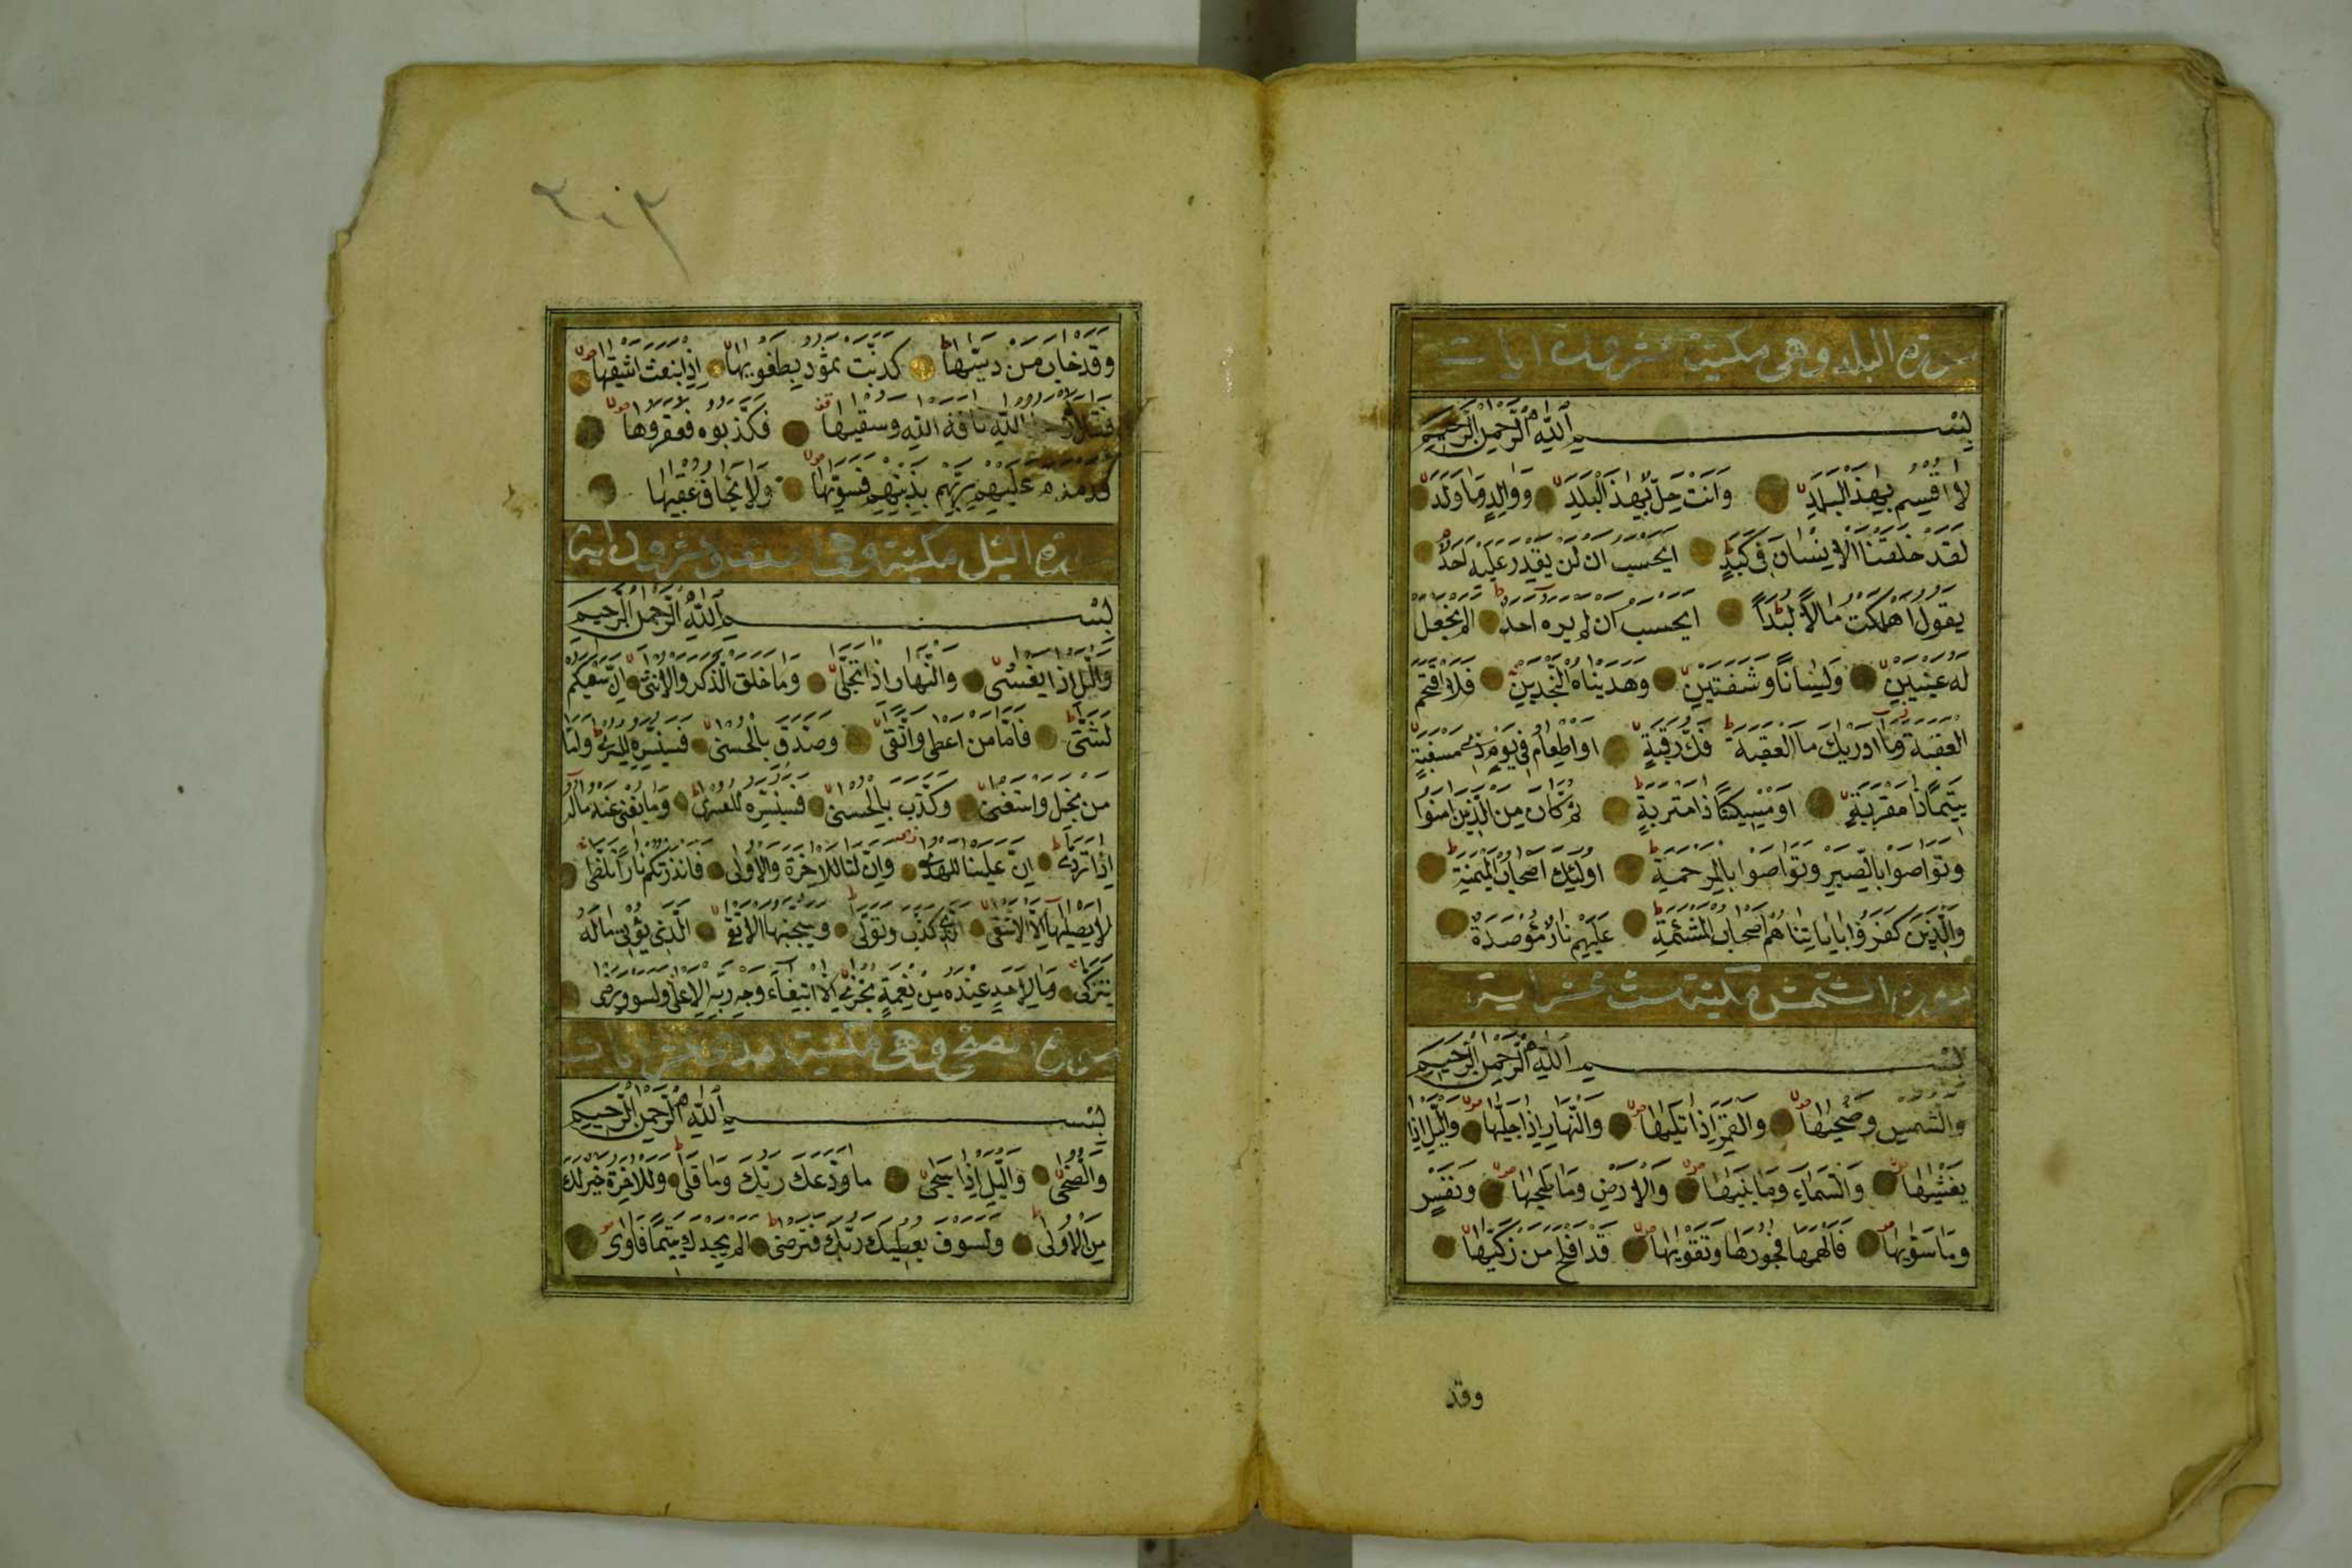 سورة البلد وهى مكية عشرون ايات
بِسْمِ اللّٰهِ الرَّحْمٰنِ الرَّحِيمِ
لَا اُقْسِمُ بِهٰذَا الْبَلَدِ وَاَنْتَ حِلٌّ بِهٰذَا الْبَلَدِ وَوَالِدٍ وَمَا وَلَدَ
لَقَدْ خَلَقْنَا الْاِنْسَانَ فِى كَبَدٍ اَيَحْسَبُ اَنْ لَنْ يَقْدِرَ عَلَيْهِ اَحَدٌ
يَقُولُ اَهْلَكْتُ مَالًا لُبَدًا اَيَحْسَبُ اَنْ لَمْ يَرَهُ اَحَدٌ اَلَمْ نَجْعَلْ
لَهُ عَيْنَيْنِ وَلِسَانًا وَشَفَتَيْنِ وَهَدَيْنَاهُ النَّجْدَيْنِ فَلَا اقْتَحَمَ
الْعَقَبَةَ وَمَا اَدْرٰيكَ مَا الْعَقَبَةُ فَكُّ رَقَبَةٍ اَوْ اِطْعَامٌ فِى يَوْمٍ ذِى مَسْغَبَةٍ
يَتِيمًا ذَا مَقْرَبَةٍ اَوْ مِسْكِينًا ذَا مَتْرَبَةٍ ثُمَّ كَانَ مِنَ الَّذِينَ اٰمَنُوا
وَتَوَاصَوْا بِالصَّبْرِ وَتَوَاصَوْا بِالْمَرْحَمَةِ اُولٰئِكَ اَصْحَابُ الْمَيْمَنَةِ
وَالَّذِينَ كَفَرُوا بِاٰيَاتِنَا هُمْ اَصْحَابُ الْمَشْئَمَةِ عَلَيْهِمْ نَارٌ مُؤْصَدَةٌ
سورة الشمس مكية ست عشر اية
بِسْمِ اللّٰهِ الرَّحْمٰنِ الرَّحِيمِ
وَالشَّمْسِ وَضُحٰيهَا وَالْقَمَرِ اِذَا تَلٰيهَا وَالنَّهَارِ اِذَا جَلّٰيهَا وَالَّيْلِ اِذَا
يَغْشٰيهَا وَالسَّمَاءِ وَمَا بَنٰيهَا وَالْاَرْضِ وَمَا طَحٰيهَا وَنَفْسٍ
وَمَا سَوّٰيهَا فَاَلْهَمَهَا فُجُورَهَا وَتَقْوٰيهَا قَدْ اَفْلَحَ مَنْ زَكّٰيهَا
وقد
٢٠٣
وَقَدْ خَابَ مَنْ دَسّٰيهَا كَذَّبَتْ ثَمُودُ بِطَغْوٰيهَا اِذِ انْبَعَثَ اَشْقٰيهَا
فَقَالَ اللّٰهِ نَاقَةَ اللّٰهِ وَسُقْيٰيهَا فَكَذَّبُوهُ فَعَقَرُوهَا
فَدَمْدَمَ عَلَيْهِمْ رَبُّهُمْ بِذَنْبِهِمْ فَسَوّٰيهَا وَلَا يَخَافُ عُقْبٰيهَا
سورة اليل مكية وهى وعشرون اية
بِسْمِ اللّٰهِ الرَّحْمٰنِ الرَّحِيمِ
وَالَّيْلِ اِذَا يَغْشٰى وَالنَّهَارِ اِذَا تَجَلّٰى وَمَا خَلَقَ الذَّكَرَ وَالْاُنْثٰى اِنَّ سَعْيَكُمْ
لَشَتّٰى فَاَمَّا مَنْ اَعْطٰى وَاتَّقٰى وَصَدَّقَ بِالْحُسْنٰى فَسَنُيَسِّرُهُ لِلْيُسْرٰى وَاَمَّا
مَنْ بَخِلَ وَاسْتَغْنٰى وَكَذَّبَ بِالْحُسْنٰى فَسَنُيَسِّرُهُ لِلْعُسْرٰى وَمَا يُغْنِى عَنْهُ مَالُهُ
اِذَا تَرَدّٰى اِنَّ عَلَيْنَا لَلْهُدٰى وَاِنَّ لَنَا لَلْاٰخِرَةَ وَالْاُولٰى فَاَنْذَرْتُكُمْ نَارًا تَلَظّٰى
لَا يَصْلٰيهَا اِلَّا الْاَشْقٰى الَّذِى كَذَّبَ وَتَوَلّٰى وَسَيُجَنَّبُهَا الْاَتْقٰى الَّذِى يُؤْتِى مَالَهُ
يَتَزَكّٰى وَمَا لِاَحَدٍ عِنْدَهُ مِنْ نِعْمَةٍ تُجْزٰى اِلَّا ابْتِغَاءَ وَجْهِ رَبِّهِ الْاَعْلٰى وَلَسَوْفَ يَرْضٰى
سورة الضحى وهى مكية احدى عشر ايات
بِسْمِ اللّٰهِ الرَّحْمٰنِ الرَّحِيمِ
وَالضُّحٰى وَالَّيْلِ اِذَا سَجٰى مَا وَدَّعَكَ رَبُّكَ وَمَا قَلٰى وَلَلْاٰخِرَةُ خَيْرٌ لَكَ
مِنَ الْاُولٰى وَلَسَوْفَ يُعْطِيكَ رَبُّكَ فَتَرْضٰى اَلَمْ يَجِدْكَ يَتِيمًا فَاٰوٰى